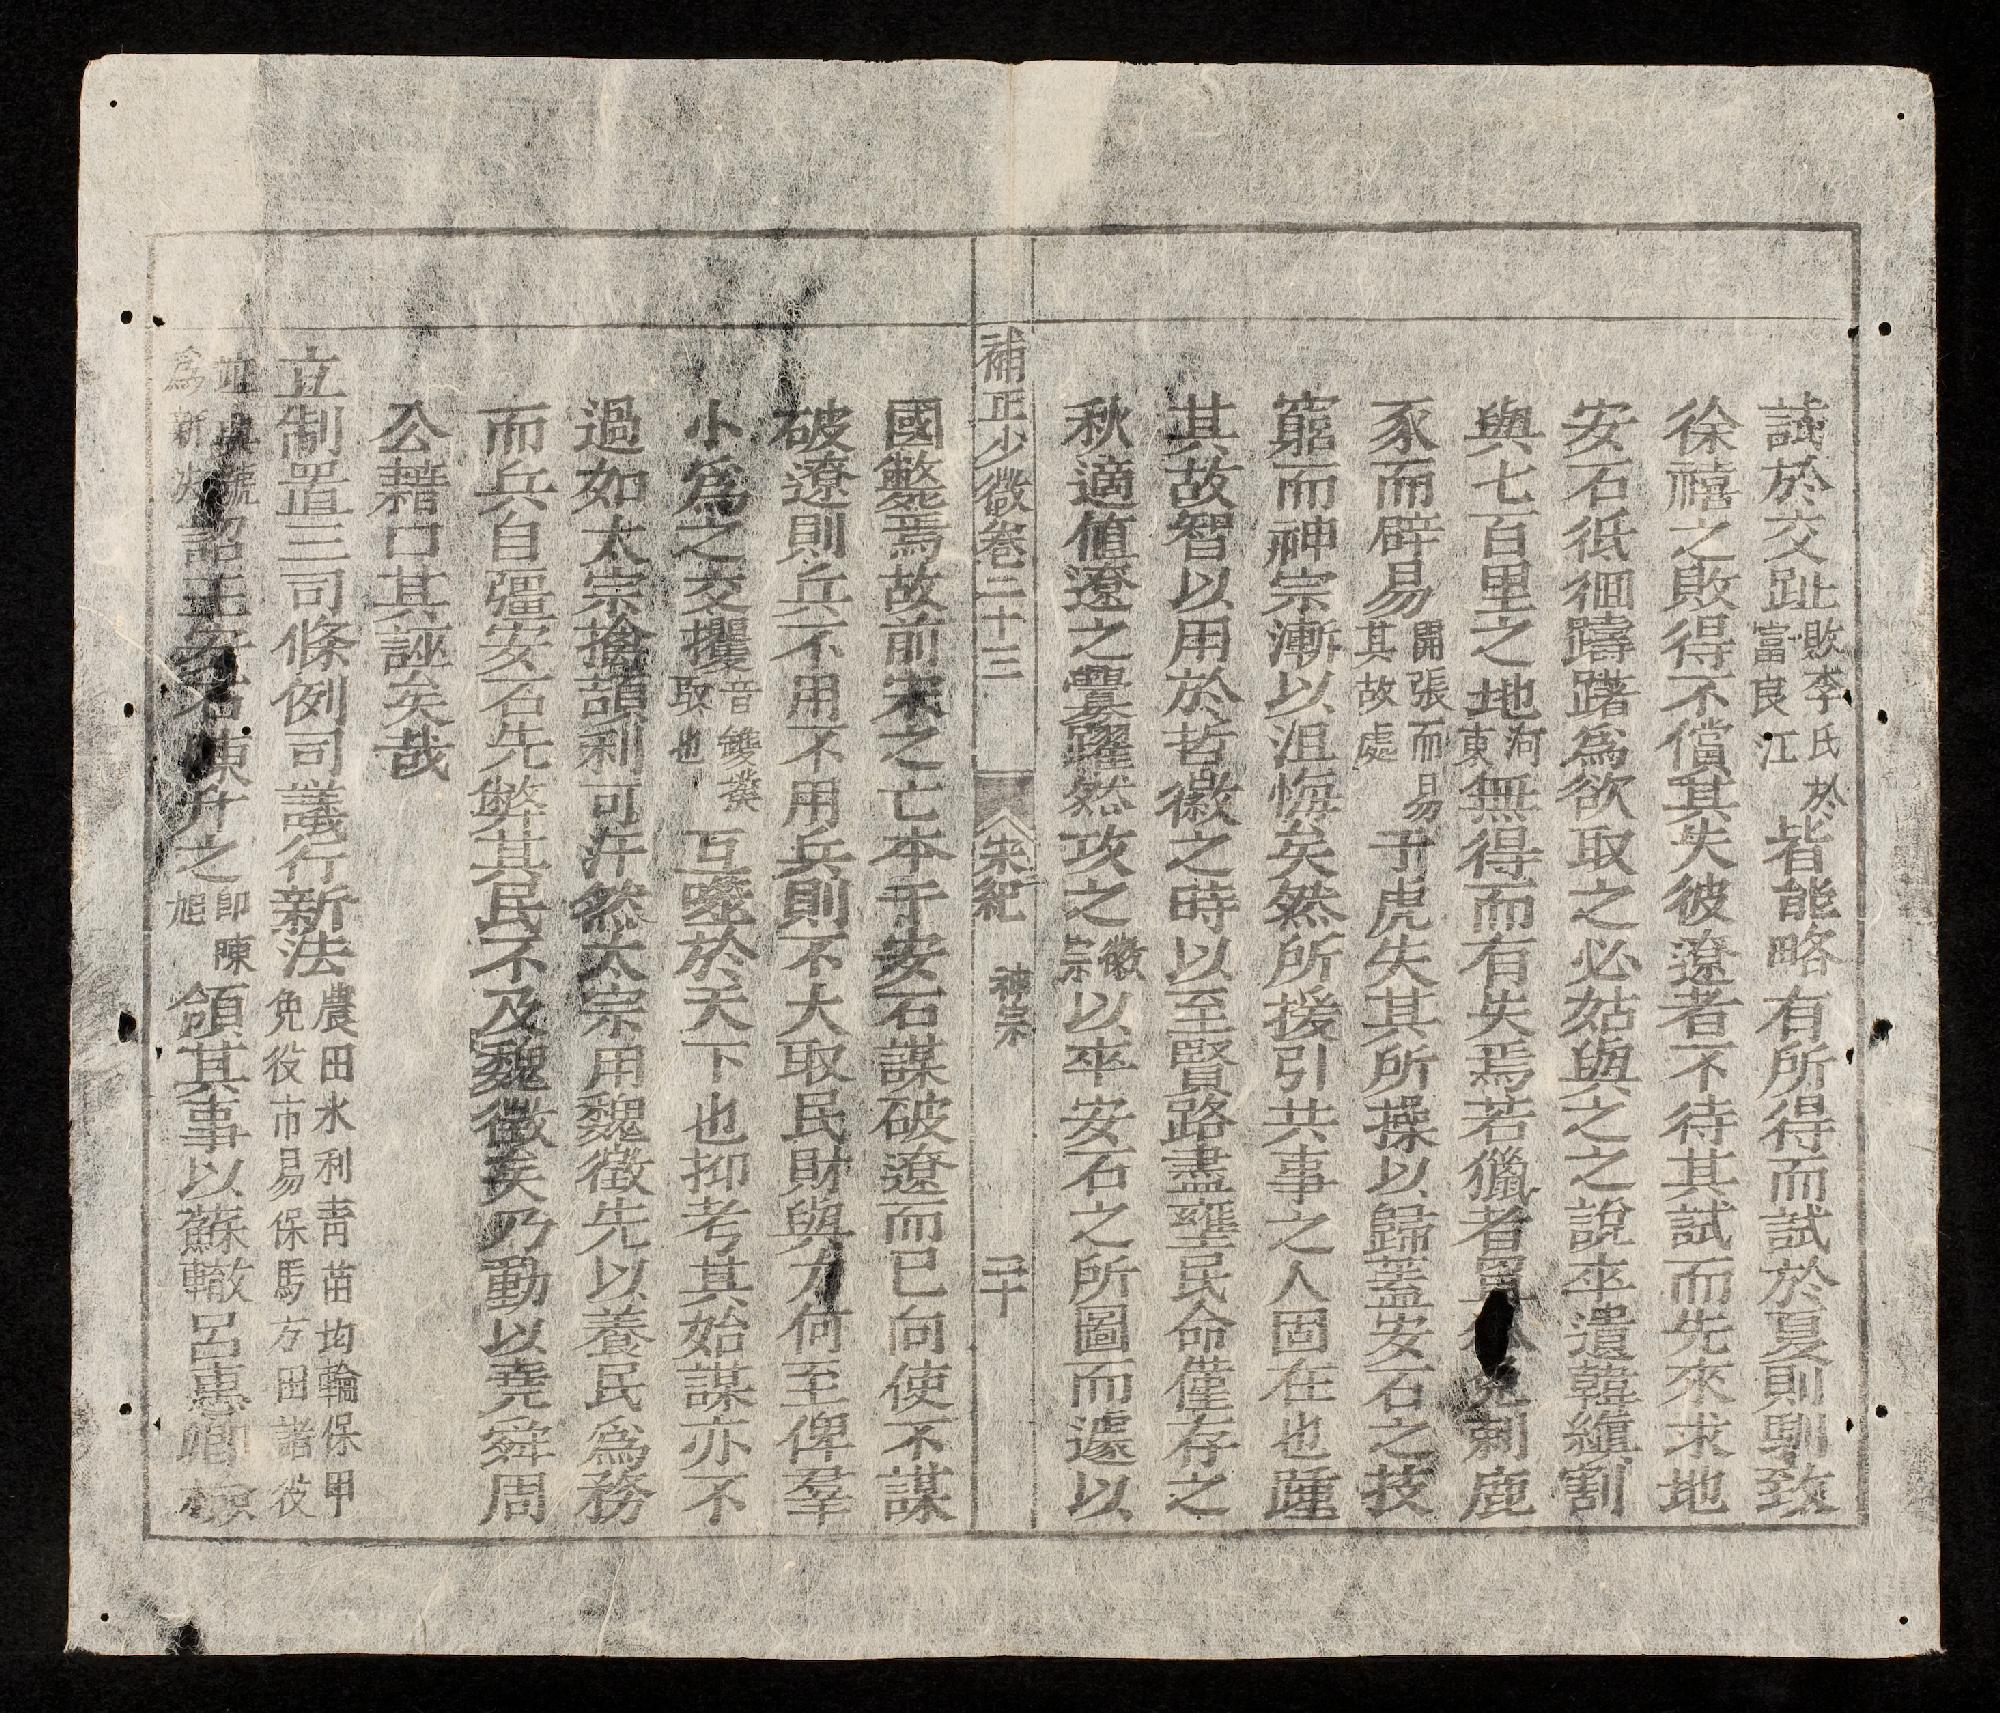 試於交趾敗李氏於富良江皆能略有所得而試於夏則馴致
徐禧之敗得不償其失彼遼者不待其試而先來求地
安石彽徊躊躇爲欲取之必姑與之之說卒遣韓縝割
與七百里之地河東無得而有失焉若獵者刺鹿
豕而辟易開張而易其故處于虎失其所操以歸蓋安石之技
窮而神宗漸以沮悔矣然所援引共事之人固在也踵
其故智以用於哲徽之時以至賢路盡壅民命僅存之
秋適值遼之釁躍然攻之徽宗以卒安石之所圖而遽以
補正少微卷二十三 宋紀 神宗 二十
國斃焉故前宋之亡本于安石謀破遼而已向使不謀
破遼則兵不用不用兵則不大取民財與力何至俾羣
小爲之交攫取也互噬於天下也抑考其始謀亦不
過如太宗擒頡利可汗然太宗用魏徵先以養民爲務
而兵自彊安石先弊其民不及魏徵矣乃動以堯舜周
公藉口其誣矣哉
立制置三司條例司議行新法農田水利靑苗均輸保甲免役市易保馬方田諸役
並興號爲新法詔王安石陳升之卽陳旭領其事以蘇轍呂惠卿檢